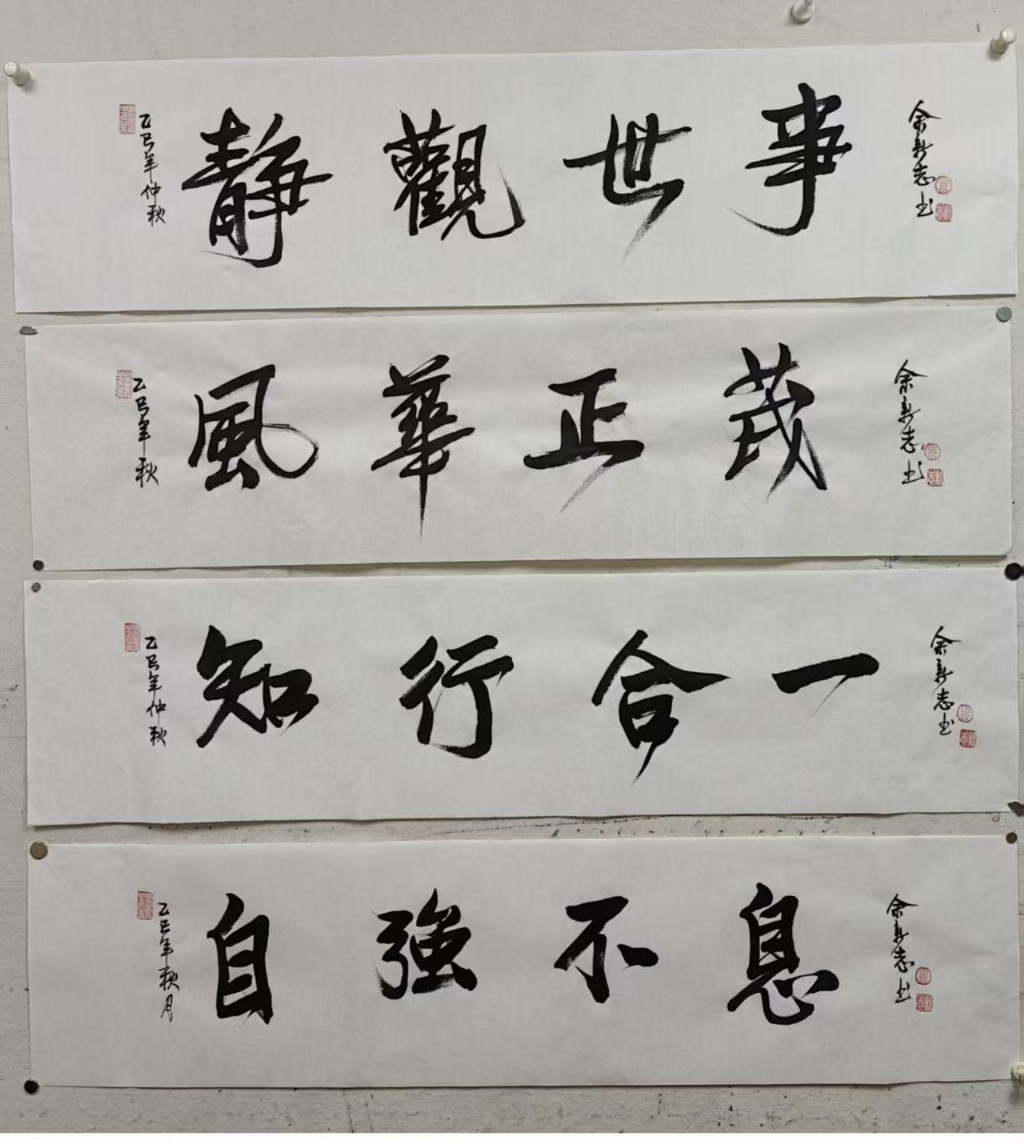 乙巳年仲秋
靜觀世事
余新志书
乙巳年秋
風華正茂
余新志书
乙巳年仲秋
知行合一
余新志书
乙巳年秋月
自強不息
余新志书